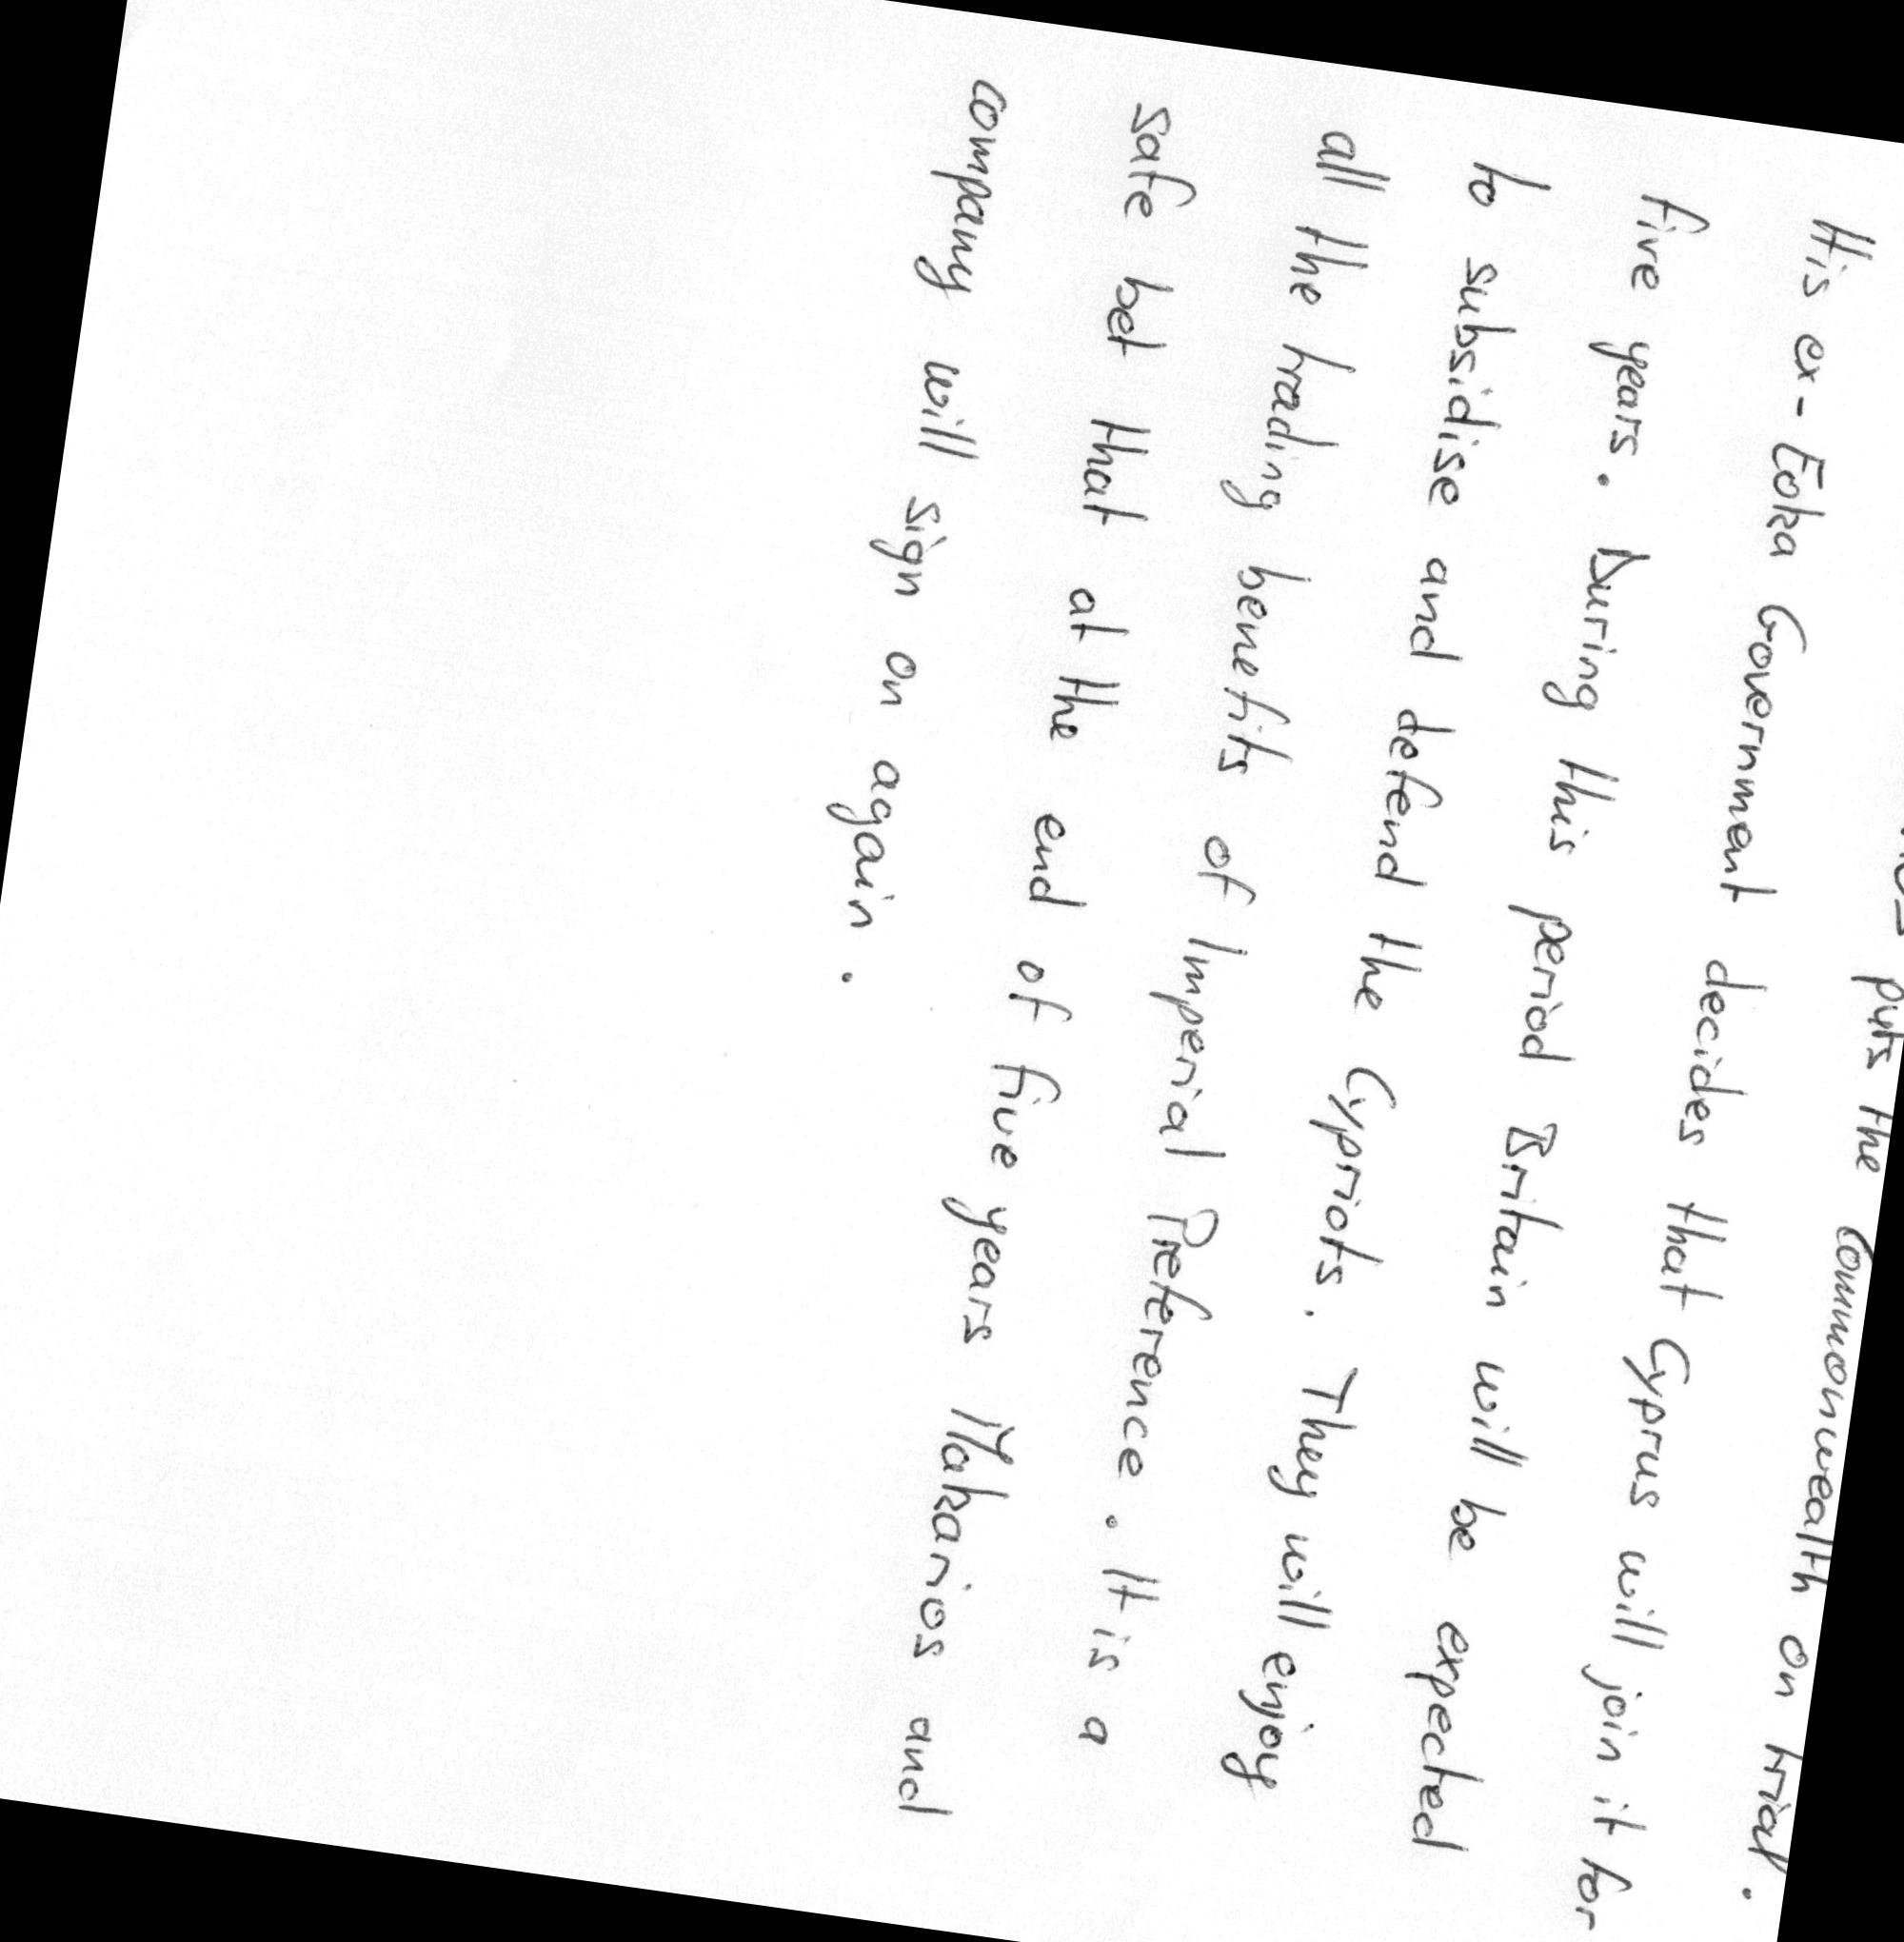 puts the Commonwealth on trial.
His ex-Eoka Government decides that Cyprus will join it for
five years. During this period Britain will be expected
to subsidise and defend the Cypriots. They will enjoy
all the trading benefits of Imperial Preference. It is a
safe bet that at the end of five years Makarios and
company will sign on again.